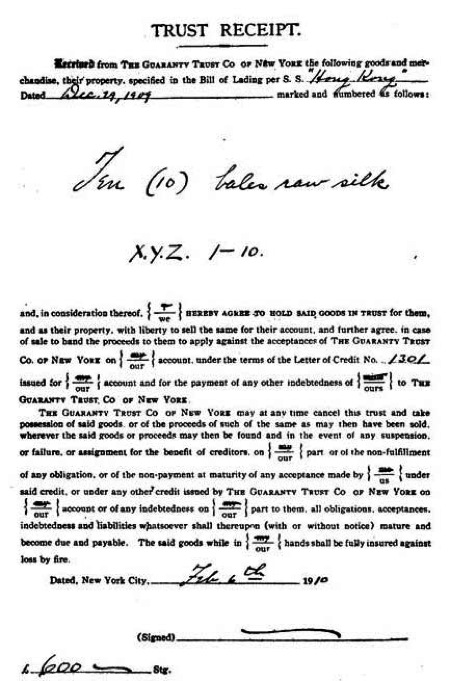 TRUST RECEIPT.
Received from THE GUARANTY TRUST CO OF NEW YORK the following goods and mer-
chandise, their property, specified in the Bill of Lading per S. S. "Hong Kong"
Dated Dec. 29, 1909 marked and numbered as follows:
Ten (10) bales raw silk
X.Y.Z. 1-10.
and, in consideration thereof, { I / we } HEREBY AGREE TO HOLD SAID GOODS IN TRUST for them,
and as their property, with liberty to sell the same for their account, and further agree, in case
of sale to hand the proceeds to them to apply against the acceptances of THE GUARANTY TRUST
CO. OF NEW YORK on { my / our } account, under the terms of the Letter of Credit No. 1301
issued for { my / our } account and for the payment of any other indebtedness of { mine / ours } to THE
GUARANTY TRUST, CO OF NEW YORK.
THE GUARANTY TRUST CO OF NEW YORK may at any time cancel this trust and take
possession of said goods, or of the proceeds of such of the same as may then have been sold,
wherever the said goods or proceeds may then be found and in the event of any suspension,
or failure, or assignment for the benefit of creditors, on { my / our } part or of the non-fulfillment
of any obligation, or of the non-payment at maturity of any acceptance made by { me / us } under
said credit, or under any other credit issued by THE GUARANTY TRUST CO OF NEW YORK on
{ my / our } account or of any indebtedness on { my / our } part to them, all obligations, acceptances,
indebtedness and liabilities whatsoever shall thereupon (with or without notice) mature and
become due and payable. The said goods while in { my / our } hands shall be fully insured against
loss by fire.
Dated, New York City, Feb 6th 1910
(Signed)
£ 600 Stg.